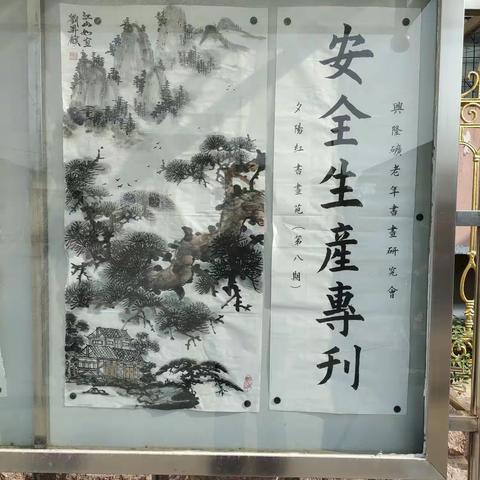 興隆礦老年書畫研究會
安全生產專刊
夕陽紅書畫苑（第八期）
江山如畫